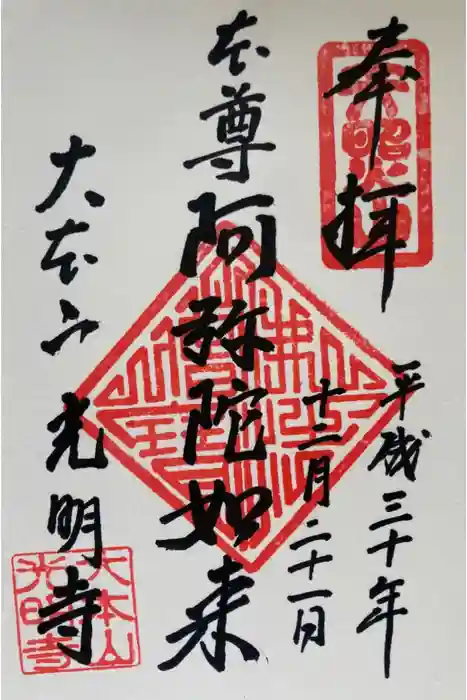 奉拝
平成三十年
十二月二十一日
本尊阿弥陀如来
大本山光明寺
大本山
光明寺